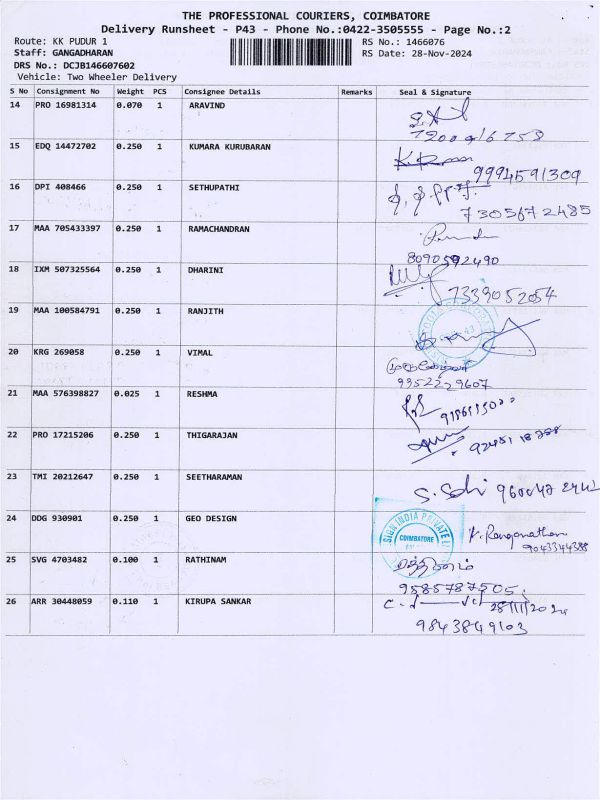 THE PROFESSIONAL COURIERS, COIMBATORE
Delivery Runsheet - P43 - Phone No.:0422-3505555 - Page No.:2
Route: KK PUDUR 1 RS No.: 1466076
Staff: GANGADHARAN RS Date: 28-Nov-2024
DRS No.: DCJB146607602
Vehicle: Two Wheeler Delivery
S No Consignment No Weight PCS Consignee Details Remarks Seal & Signature
14 PRO 16981314 0.070 1 ARAVIND
15 EDQ 14472702 0.250 1 KUMARA KURUBARAN
9994591309
16 DPI 408466 0.250 1 SETHUPATHI
7305672485
17 MAA 705433397 0.250 1 RAMACHANDRAN
8090592490
18 IXM 507325564 0.250 1 DHARINI
7339052054
19 MAA 100584791 0.250 1 RANJITH
20 KRG 269058 0.250 1 VIMAL
9952229607
21 MAA 576398827 0.025 1 RESHMA
22 PRO 17215206 0.250 1 THIGARAJAN
23 TMI 20212647 0.250 1 SEETHARAMAN
24 DDG 930901 0.250 1 GEO DESIGN
SIGN INDIA PRIVATE
COIMBATORE
K. Ranganathan
9043344388
25 SVG 4703482 0.100 1 RATHINAM
ரத்தினம்
9585787505
26 ARR 30448059 0.110 1 KIRUPA SANKAR
28/11/2024
9843849103